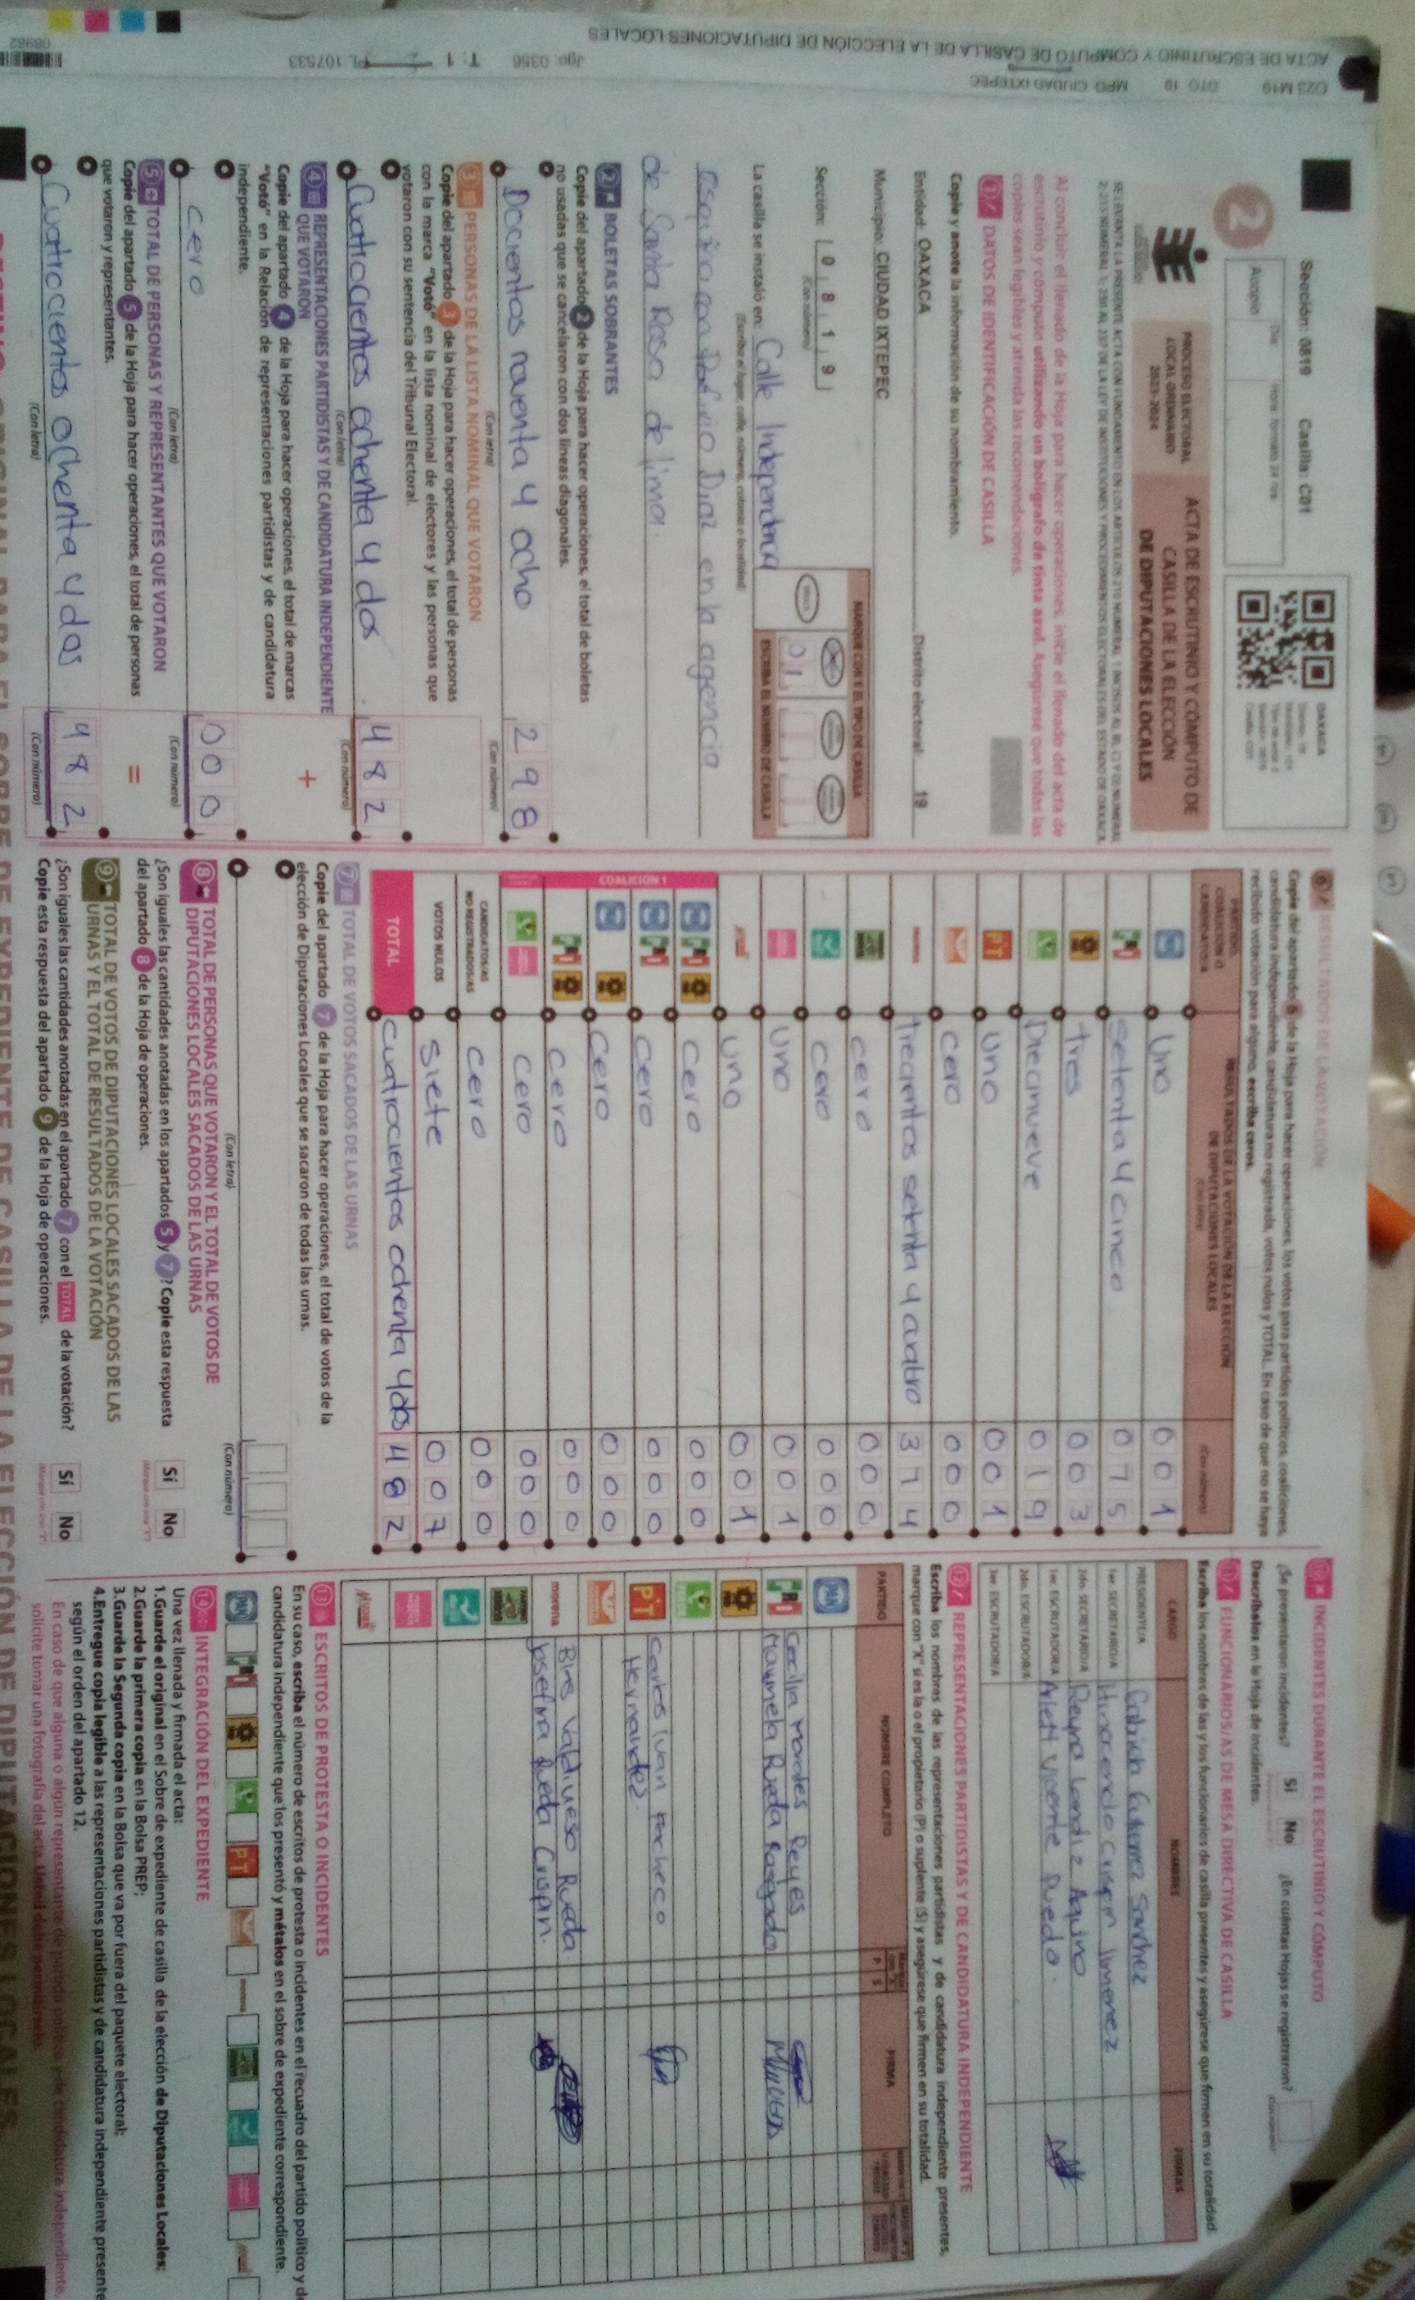 ACTA DE ESCRUTINIO Y CÓMPUTO DE CASILLA DE LA ELECCIÓN DE DIPUTACIONES LOCALES
023 M19 DTO 19 MPO CIUDAD IXTEPEC
Jgo: 0356 T: 1 PL 107533
08962
Sección: 0819 Casilla: C01
2
Acopio
PROCESO ELECTORAL
LOCAL ORDINARIO
2023-2024
ACTA DE ESCRUTINIO Y CÓMPUTO DE
CASILLA DE LA ELECCIÓN
DE DIPUTACIONES LOCALES
OAXACA
Al concluir el llenado de la Hoja para hacer operaciones, inicie el llenado del acta de
escrutinio y cómputo utilizando un bolígrafo de tinta azul. Asegúrese que todas las
copias sean legibles y atienda las recomendaciones.
1 DATOS DE IDENTIFICACIÓN DE CASILLA
Copie y anote la información de su nombramiento.
Entidad: OAXACA Distrito electoral: 19
Municipio: CIUDAD IXTEPEC
Sección: 0 8 1 9
(Con número)
MARQUE CON X EL TIPO DE CASILLA
01
ESCRIBA EL NÚMERO DE CASILLA
La casilla se instaló en: Calle Independencia
(Escriba el lugar, calle, número, colonia o localidad)
esquina con Porfirio Diaz en la agencia
de Santa Rosa de lima.
2 BOLETAS SOBRANTES
Copie del apartado 2 de la Hoja para hacer operaciones, el total de boletas
no usadas que se cancelaron con dos líneas diagonales.
Docientos noventa y ocho 298
(Con letra) (Con número)
3 PERSONAS DE LA LISTA NOMINAL QUE VOTARON
Copie del apartado 3 de la Hoja para hacer operaciones, el total de personas
con la marca "Votó" en la lista nominal de electores y las personas que
votaron con su sentencia del Tribunal Electoral.
Cuatrocientos ochenta y dos 482
(Con letra) (Con número)
4 REPRESENTACIONES PARTIDISTAS Y DE CANDIDATURA INDEPENDIENTE
QUE VOTARON
Copie del apartado 4 de la Hoja para hacer operaciones, el total de marcas
"Votó" en la Relación de representaciones partidistas y de candidatura
independiente.
+
cero 000
(Con letra) (Con número)
5 TOTAL DE PERSONAS Y REPRESENTANTES QUE VOTARON
Copie del apartado 5 de la Hoja para hacer operaciones, el total de personas
que votaron y representantes.
=
Cuatrocientos ochenta y dos 482
(Con letra) (Con número)
6 RESULTADOS DE LA VOTACIÓN
Copie del apartado 6 de la Hoja para hacer operaciones, los votos para partidos políticos, coaliciones,
candidatura independiente, candidatura no registrada, votos nulos y TOTAL. En caso de que no se haya
recibido votación para alguno, escriba ceros.
PARTIDO,
COALICIÓN O
CANDIDATO/A
RESULTADOS DE LA VOTACIÓN DE LA ELECCIÓN
DE DIPUTACIONES LOCALES
(Con letra)
(Con número)
Uno 001
setenta y cinco 075
tres 003
Diecinueve 019
PT uno 001
cero 000
morena trecientos setenta y cuatro 374
cero 000
cero 000
uno 001
uno 001
COALICIÓN 1
cero 000
cero 000
cero 000
cero 000
cero 000
CANDIDATOS/AS
NO REGISTRADOS/AS cero 000
VOTOS NULOS siete 007
TOTAL cuatrocientos ochenta y dos 482
7 TOTAL DE VOTOS SACADOS DE LAS URNAS
Copie del apartado 7 de la Hoja para hacer operaciones, el total de votos de la
elección de Diputaciones Locales que se sacaron de todas las urnas.
(Con letra) (Con número)
8 TOTAL DE PERSONAS QUE VOTARON Y EL TOTAL DE VOTOS DE
DIPUTACIONES LOCALES SACADOS DE LAS URNAS
¿Son iguales las cantidades anotadas en los apartados 5 y 7? Copie esta respuesta
del apartado 8 de la Hoja de operaciones.
Sí No
9 TOTAL DE VOTOS DE DIPUTACIONES LOCALES SACADOS DE LAS
URNAS Y EL TOTAL DE RESULTADOS DE LA VOTACIÓN
¿Son iguales las cantidades anotadas en el apartado 7 con el TOTAL de la votación?
Copie esta respuesta del apartado 9 de la Hoja de operaciones.
Sí No
10 INCIDENTES DURANTE EL ESCRUTINIO Y CÓMPUTO
¿Se presentaron incidentes? Sí No ¿En cuántas Hojas se registraron?
Descríbalos en la Hoja de incidentes.
11 FUNCIONARIOS/AS DE MESA DIRECTIVA DE CASILLA
Escriba los nombres de las y los funcionarios de casilla presentes y asegúrese que firmen en su totalidad.
CARGO NOMBRES FIRMAS
PRESIDENTE/A Gutierrez Sanchez
1er. SECRETARIO/A Crispin Jimenez
2do. SECRETARIO/A Reyna Aquino
1er. ESCRUTADOR/A Arlett Vicente
2do. ESCRUTADOR/A
3er. ESCRUTADOR/A
12 REPRESENTACIONES PARTIDISTAS Y DE CANDIDATURA INDEPENDIENTE
Escriba los nombres de las representaciones partidistas y de candidatura independiente presentes,
marque con "X" si es la o el propietario (P) o suplente (S) y asegúrese que firmen en su totalidad.
PARTIDO NOMBRE COMPLETO P S FIRMA
Cecilia Morales Reyes
Manuela Rueda Rasgado
PT Carlos Ivan Pacheco
Hernandez.
morena Bins Valdiueso Rueda
Josefina Rueda Crispin.
13 ESCRITOS DE PROTESTA O INCIDENTES
En su caso, escriba el número de escritos de protesta o incidentes en el recuadro del partido político y de
candidatura independiente que los presentó y métalos en el sobre de expediente correspondiente.
PT
14 INTEGRACIÓN DEL EXPEDIENTE
Una vez llenada y firmada el acta:
1.Guarde el original en el Sobre de expediente de casilla de la elección de Diputaciones Locales;
2.Guarde la primera copia en la Bolsa PREP;
3.Guarde la Segunda copia en la Bolsa que va por fuera del paquete electoral;
4.Entregue copia legible a las representaciones partidistas y de candidatura independiente presentes
según el orden del apartado 12.
En caso de que alguna o algún representante de partido político y de candidatura independiente,
solicite tomar una fotografía del acta, Usted debe permitírselo.